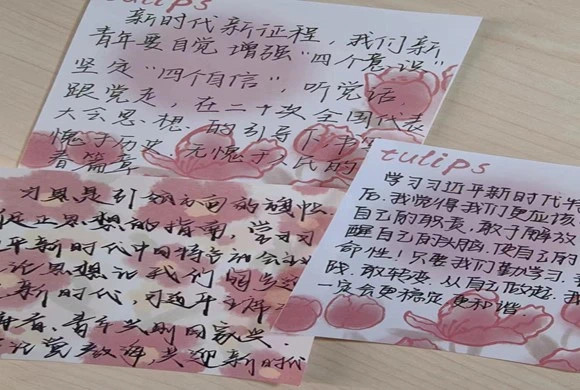 tulips
新时代新征程，我们新
青年要自觉增强“四个意识”
坚定“四个自信”，听党话，
跟党走，在二十次全国代表
大会思想的引导下，书写
愧于历史，无愧于人民的
春篇章
方思是引领方向的旗帜
正思想的指南，学习习
平新时代中国特色社会主
思想让我们
新时代，习近平主席
青春，青年兴则国家兴
党教诲，共迎新时代
tulips
学习习近平新时代中特
后，我觉得我们更应该
自己的职责，敢于解放
醒自己的头脑，使自己的
命性！只要我们勤学习，我
践，敢转变，从自己做起，我
一定会更稳定，更和谐。